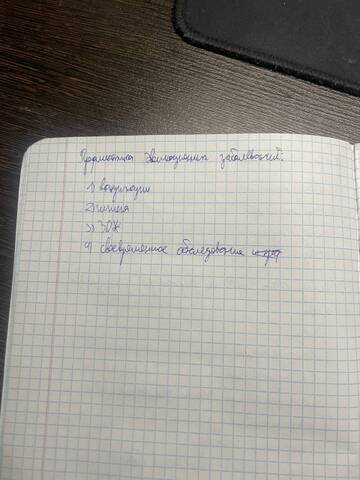 Профилактика заболеваний:
1) вакцинации
2) гигиена
3) ЗОЖ
4) своевременное обследование